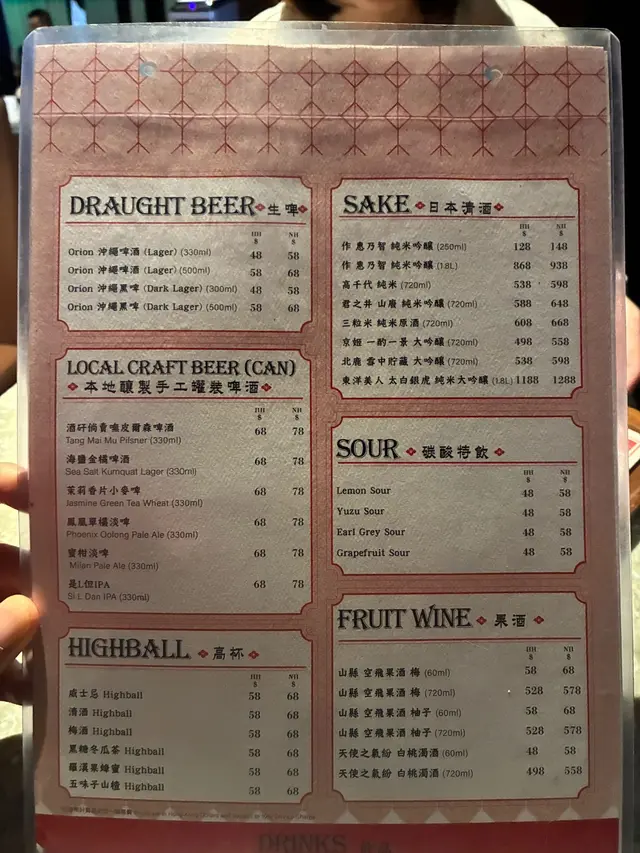 DRAUGHT BEER 生啤
HH
$
NH
$
Orion 沖繩啤酒 (Lager) (330ml) 48 58
Orion 沖繩啤酒 (Lager) (500ml) 58 68
Orion 沖繩黑啤 (Dark Lager) (300ml) 48 58
Orion 沖繩黑啤 (Dark Lager) (500ml) 58 68
LOCAL CRAFT BEER (CAN)
本地釀製手工罐裝啤酒
HH
$
NH
$
酒矸倘賣嘸皮爾森啤酒 68 78
Tang Mai Mu Pilsner (330ml)
海鹽金橘啤酒 68 78
Sea Salt Kumquat Lager (330ml)
茉莉香片小麥啤 68 78
Jasmine Green Tea Wheat (330ml)
鳳凰單欉淡啤 68 78
Phoenix Oolong Pale Ale (330ml)
蜜柑淡啤 68 78
Milan Pale Ale (330ml)
是L但IPA 68 78
Si L Dan IPA (330ml)
HIGHBALL 高杯
HH
$
NH
$
威士忌 Highball 58 68
清酒 Highball 58 68
梅酒 Highball 58 68
黑糖冬瓜茶 Highball 58 68
羅漢果蜂蜜 Highball 58 68
五味子山楂 Highball 58 68
SAKE 日本清酒
HH
$
NH
$
作 惠乃智 純米吟釀 (250ml) 128 148
作 惠乃智 純米吟釀 (1.8L) 868 938
高千代 純米 (720ml) 538 598
君之井 山廢 純米吟釀 (720ml) 588 648
三粒米 純米原酒 (720ml) 608 668
京姬 一酌一景 大吟釀 (720ml) 498 558
北鹿 雲中貯藏 大吟釀 (720ml) 538 598
東洋美人 太白銀虎 純米大吟釀 (1.8L) 1188 1288
SOUR 碳酸特飲
HH
$
NH
$
Lemon Sour 48 58
Yuzu Sour 48 58
Earl Grey Sour 48 58
Grapefruit Sour 48 58
FRUIT WINE 果酒
HH
$
NH
$
山縣 空飛果酒 梅 (60ml) 58 68
山縣 空飛果酒 梅 (720ml) 528 578
山縣 空飛果酒 柚子 (60ml) 58 68
山縣 空飛果酒 柚子 (720ml) 528 578
天使之氣紛 白桃濁酒 (60ml) 48 58
天使之氣紛 白桃濁酒 (720ml) 498 558
DRINKS